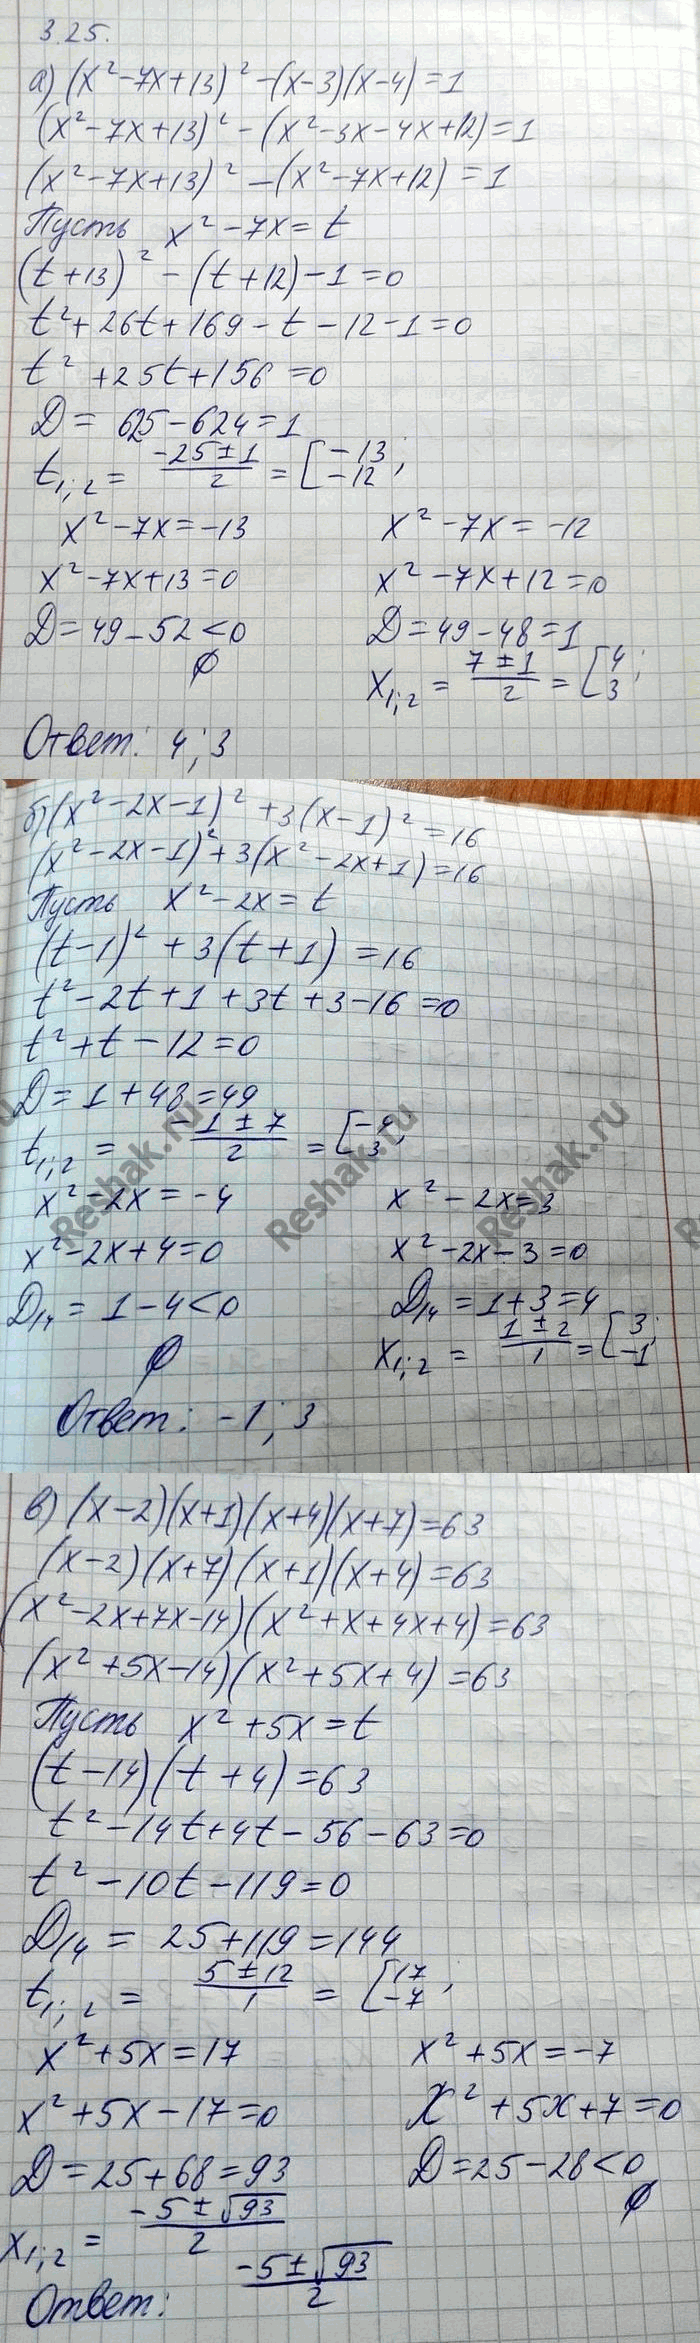 3.25.
а) (x²-7x+13)²-(x-3)(x-4)=1
(x²-7x+13)²-(x²-3x-4x+12)=1
(x²-7x+13)²-(x²-7x+12)=1
Пусть x²-7x=t
(t+13)²-(t+12)-1=0
t²+26t+169-t-12-1=0
t²+25t+156=0
D=625-624=1
t₁;₂= (-25±1)/2 = [-13; -12
x²-7x=-13 x²-7x=-12
x²-7x+13=0 x²-7x+12=0
D=49-52<0 D=49-48=1
∅ x₁;₂= (7±1)/2 = [4; 3
Ответ: 4; 3
б) (x²-2x-1)²+3(x-1)²=16
(x²-2x-1)²+3(x²-2x+1)=16
Пусть x²-2x=t
(t-1)²+3(t+1)=16
t²-2t+1+3t+3-16=0
t²+t-12=0
D=1+48=49
t₁;₂= (-1±7)/2 = [-4; 3
x²-2x=-4 x²-2x=3
x²-2x+4=0 x²-2x-3=0
D/4=1-4<0 D/4=1+3=4
∅ x₁;₂= (1±2)/1 = [3; -1
Ответ: -1; 3
Reshak.ru Reshak.ru Reshak.ru
в) (x-2)(x+1)(x+4)(x+7)=63
(x-2)(x+7)(x+1)(x+4)=63
(x²-2x+7x-14)(x²+x+4x+4)=63
(x²+5x-14)(x²+5x+4)=63
Пусть x²+5x=t
(t-14)(t+4)=63
t²-14t+4t-56-63=0
t²-10t-119=0
D/4=25+119=144
t₁;₂= (5±12)/1 = [17; -7
x²+5x=17 x²+5x=-7
x²+5x-17=0 x²+5x+7=0
D=25+68=93 D=25-28<0
x₁;₂= (-5±√93)/2 ∅
Ответ: (-5±√93)/2